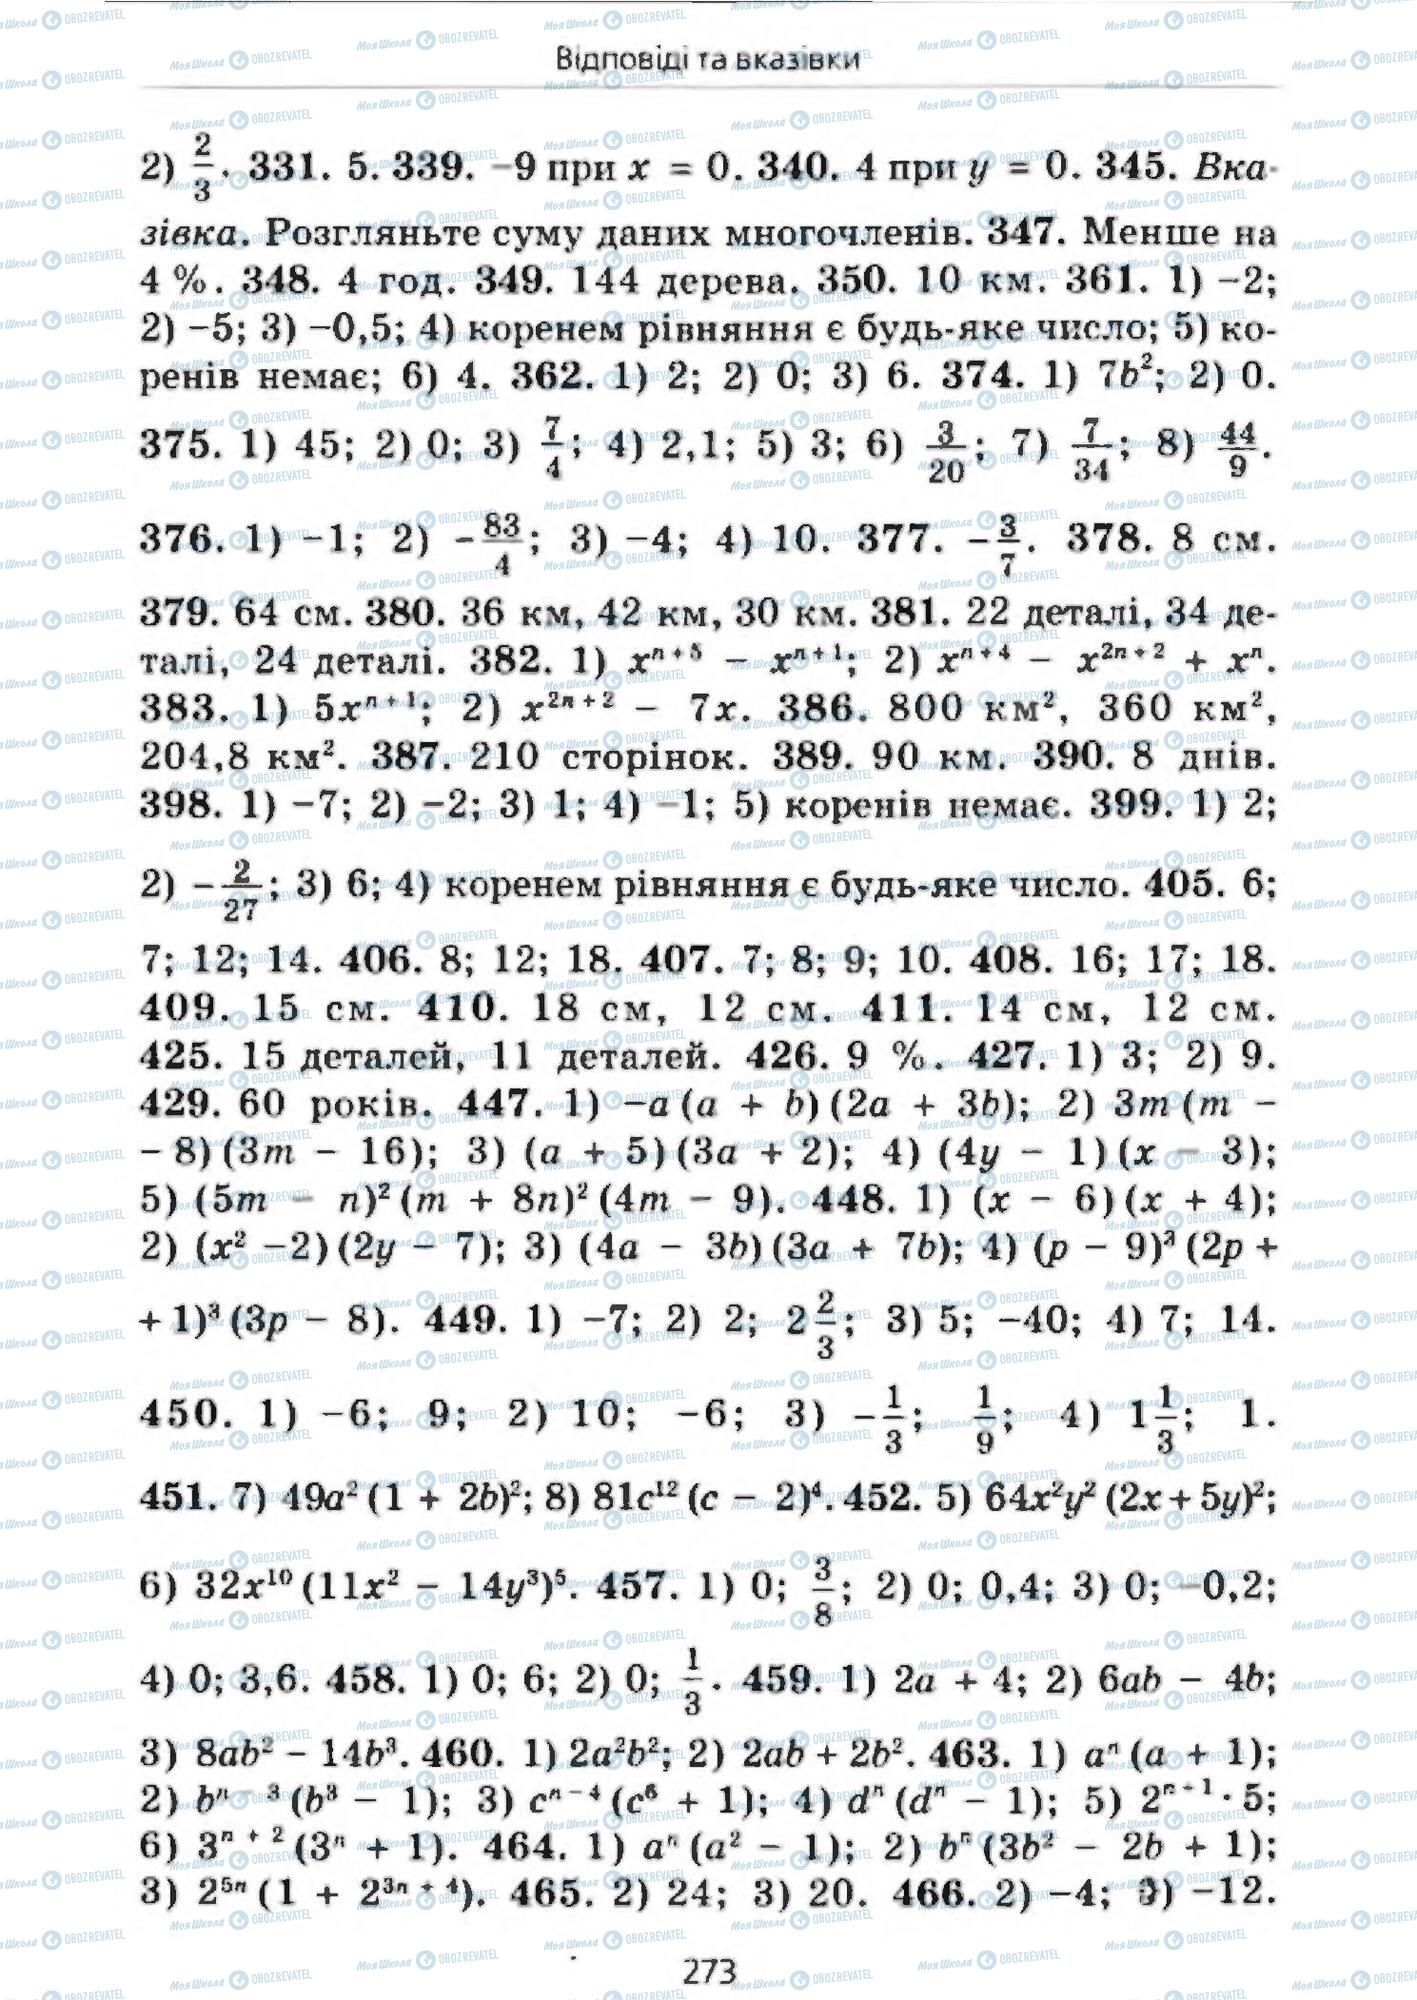 Відповіді та вказівки
2) 2/3. 331. 5. 339. -9 при x = 0. 340. 4 при y = 0. 345. Вка-
зівка. Розгляньте суму даних многочленів. 347. Менше на
4 %. 348. 4 год. 349. 144 дерева. 350. 10 км. 361. 1) -2;
2) -5; 3) -0,5; 4) коренем рівняння є будь-яке число; 5) ко-
ренів немає; 6) 4. 362. 1) 2; 2) 0; 3) 6. 374. 1) 7b²; 2) 0.
375. 1) 45; 2) 0; 3) 7/4; 4) 2,1; 5) 3; 6) 3/20; 7) 7/34; 8) 44/9.
376. 1) -1; 2) -83/4; 3) -4; 4) 10. 377. -3/7. 378. 8 см.
379. 64 см. 380. 36 км, 42 км, 30 км. 381. 22 деталі, 34 де-
талі, 24 деталі. 382. 1) xⁿ⁺⁵ - xⁿ⁺¹; 2) xⁿ⁺⁴ - x²ⁿ⁺² + xⁿ.
383. 1) 5xⁿ⁺¹; 2) x²ⁿ⁺² - 7x. 386. 800 км², 360 км²,
204,8 км². 387. 210 сторінок. 389. 90 км. 390. 8 днів.
398. 1) -7; 2) -2; 3) 1; 4) -1; 5) коренів немає. 399. 1) 2;
2) -2/27; 3) 6; 4) коренем рівняння є будь-яке число. 405. 6;
7; 12; 14. 406. 8; 12; 18. 407. 7; 8; 9; 10. 408. 16; 17; 18.
409. 15 см. 410. 18 см, 12 см. 411. 14 см, 12 см.
425. 15 деталей, 11 деталей. 426. 9 %. 427. 1) 3; 2) 9.
429. 60 років. 447. 1) -a(a + b)(2a + 3b); 2) 3m(m -
- 8)(3m - 16); 3) (a + 5)(3a + 2); 4) (4y - 1)(x - 3);
5) (5m - n)²(m + 8n)²(4m - 9). 448. 1) (x - 6)(x + 4);
2) (x² -2)(2y - 7); 3) (4a - 3b)(3a + 7b); 4) (p - 9)³(2p +
+ 1)³(3p - 8). 449. 1) -7; 2) 2; 2 2/3; 3) 5; -40; 4) 7; 14.
450. 1) -6; 9; 2) 10; -6; 3) -1/3; 1/9; 4) 1 1/3; 1.
451. 7) 49a²(1 + 2b)²; 8) 81c¹²(c - 2)⁴. 452. 5) 64x²y²(2x + 5y)²;
6) 32x¹⁰(11x² - 14y³)⁵. 457. 1) 0; 3/8; 2) 0; 0,4; 3) 0; -0,2;
4) 0; 3,6. 458. 1) 0; 6; 2) 0; 1/3. 459. 1) 2a + 4; 2) 6ab - 4b;
3) 8ab² - 14b³. 460. 1) 2a²b²; 2) 2ab + 2b². 463. 1) aⁿ(a + 1);
2) bⁿ⁻³(b³ - 1); 3) cⁿ⁻⁴(c⁶ + 1); 4) dⁿ(dⁿ - 1); 5) 2ⁿ⁺¹·5;
6) 3ⁿ⁺²(3ⁿ + 1). 464. 1) aⁿ(a² - 1); 2) bⁿ(3b² - 2b + 1);
3) 2⁵ⁿ(1 + 2³ⁿ⁺⁴). 465. 2) 24; 3) 20. 466. 2) -4; 3) -12.
273